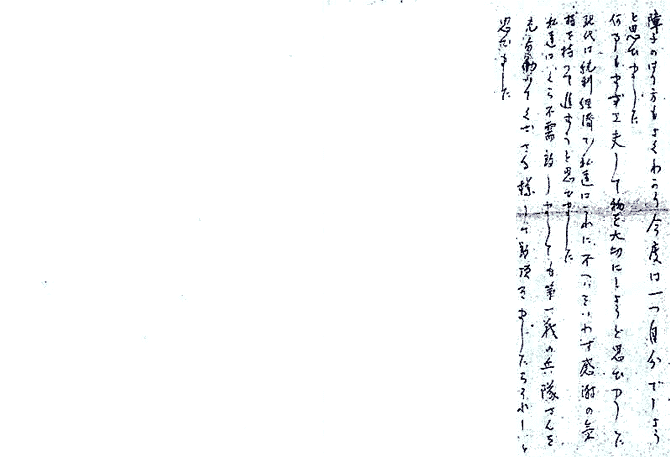 障子のはり方もよくわかり今度は一つ自分でしよう
と思ひました
何事もまず工夫して物を大切にしようと思ひました
現代は統制経済で私達はこれに不へいをいわず感謝の気
持を持つて進まうと思ひました
私達はいくら不需致しましても第一戦の兵隊さんを
充分働いてくださる様にと
思ひました